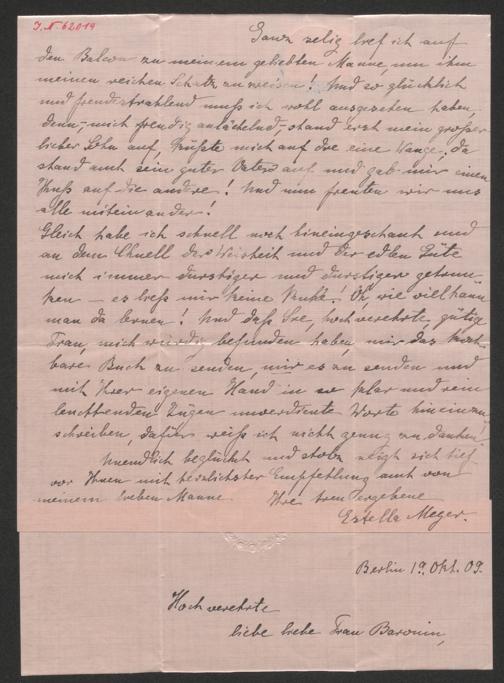 J. N. 62019
Ganz selig lief ich auf
den Balcon zu meinem geliebten Manne, um ihm
meinen reichen Schatz zu weisen! Und so glücklich
und freudestrahlend muß ich wohl ausgesehen haben,
denn, mich freudig anlächelnd, stand erst mein großer
lieber Sohn auf, küßte mich auf die eine Wange, da
stand auch sein guter Vater auf und gab mir einen
Kuß auf die andere! Und nun freuten wir uns
alle miteinander!
Gleich habe ich schnell noch hineingeschaut und
an dem Quell der Weisheit und der edlen Güte
mich immer durstiger und durstiger getrun-
ken — es ließ mir keine Ruhe! Oh, wie viel kann
man da lernen! Und daß Sie, hochverehrte gütige
Frau, mich würdig befunden haben, mir das kost-
bare Buch zu senden, mir es zu senden und
mit Ihrer eigenen Hand in so klar und rein
leuchtenden Zügen unverdiente Worte hineinzu-
schreiben, dafür weiß ich nicht genug zu danken!
Unendlich beglückt und stolz neigt sich tief
vor Ihnen mit herzlichster Empfehlung auch von
meinem lieben Manne Ihre treu ergebene
Estella Meyer.
Berlin 19. Okt. 09.
Hochverehrte
liebe liebe Frau Baronin,